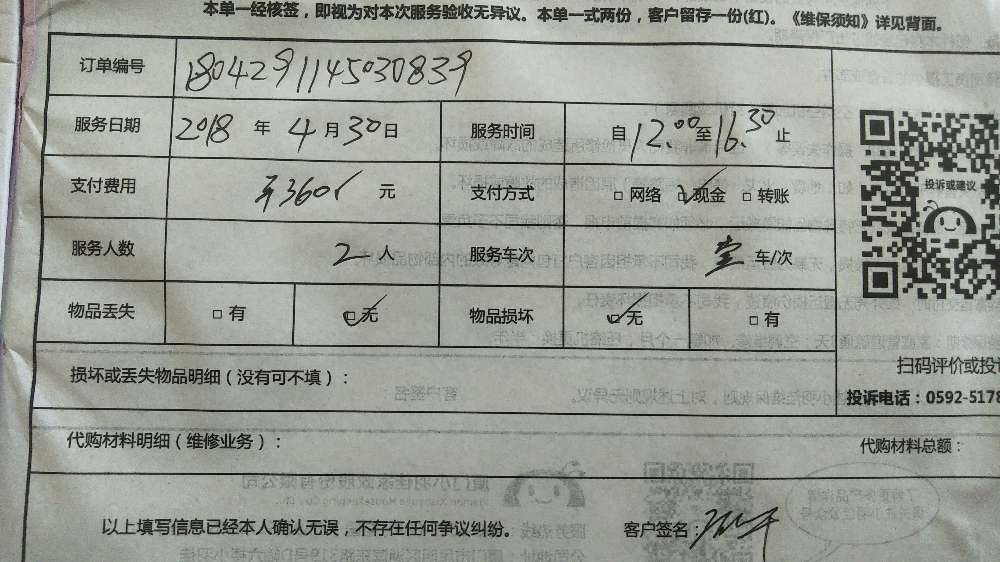 本单一经核签，即视为对本次服务验收无异议。本单一式两份，客户留存一份(红)。《维保须知》详见背面。
订单编号 1804291145030839
服务日期 2018 年 4 月 30 日 服务时间 自 12.00 至 16.30 止
支付费用 ¥360 元 支付方式 □ 网络 ☑ 现金 □ 转账
投诉或建议
服务人数 2 人 服务车次 壹 车/次
物品丢失 □ 有 ☑ 无 物品损坏 ☑ 无 □ 有
扫码评价或投
损坏或丢失物品明细（没有可不填）：
投诉电话：0592-5178
代购材料明细（维修业务）： 代购材料总额：
以上填写信息已经本人确认无误，不存在任何争议纠纷。 客户签名：